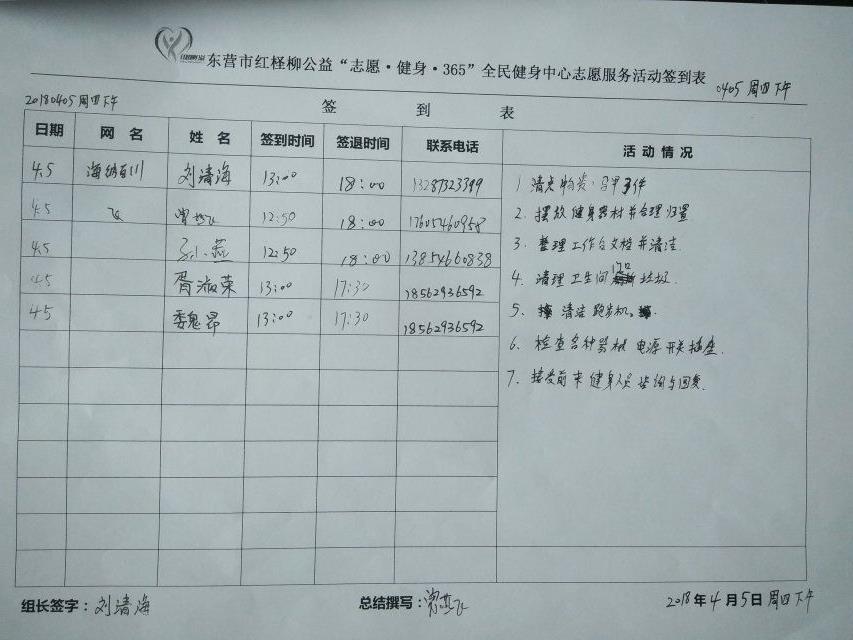 东营市红柽柳公益“志愿·健身·365”全民健身中心志愿服务活动签到表
0405 周四下午
20180405 周四下午
签 到 表
日期 网 名 姓 名 签到时间 签退时间 联系电话 活动情况
4.5 海纳百川 刘清海 13:00 18:00 13287323399
4.5 飞 12:50 18:00 17605460958
4.5 孙燕 12:50 18:00 13854660838
4.5 胥淑荣 13:00 17:30 18562936592
4.5 委魁昂 13:00 17:30 18562936592
1 清点物资
2. 摆放健身器材并合理归置
3. 整理工作台文档并清洁.
4. 清理卫生间 垃圾.
5. 清洁跑步机.
6. 检查各种器械 电源开关插座.
7. 接受前来健身人员咨询与回复.
组长签字：刘清海
总结撰写：
2018年4月5日周四下午